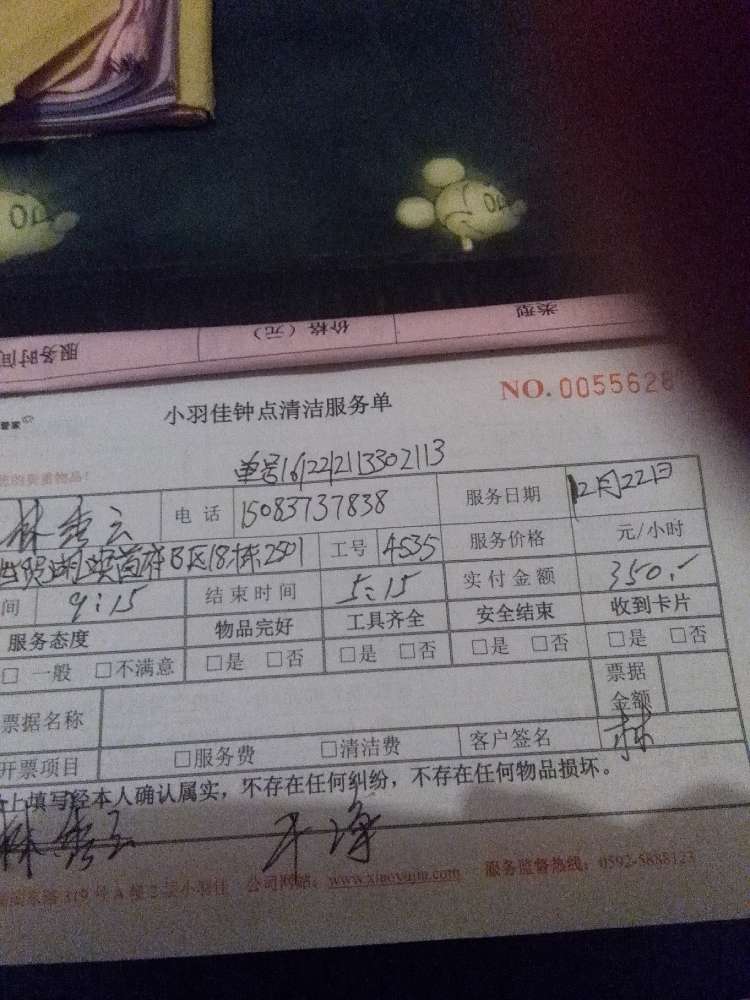 服务时间 价格（元） 类型
NO. 0055628
管家
小羽佳钟点清洁服务单
贵重物品!
单号161221213302113
林秀云 电话 15083737838 服务日期 12月22日
首府B区18栋2501 工号 4535 服务价格 元/小时
间 9:15 结束时间 5:15 实付金额 350.-
服务态度 物品完好 工具齐全 安全结束 收到卡片
□一般 □不满意 □是 □否 □是 □否 □是 □否 □是 □否
票据名称 票据金额
开票项目 □服务费 □清洁费 客户签名 林
上填写经本人确认属实，不存在任何纠纷，不存在任何物品损坏。
林秀云 干净
东路319号A幢2层小羽佳 公司网站：www.xiaoyujia.com 服务监督热线：0592-5888123